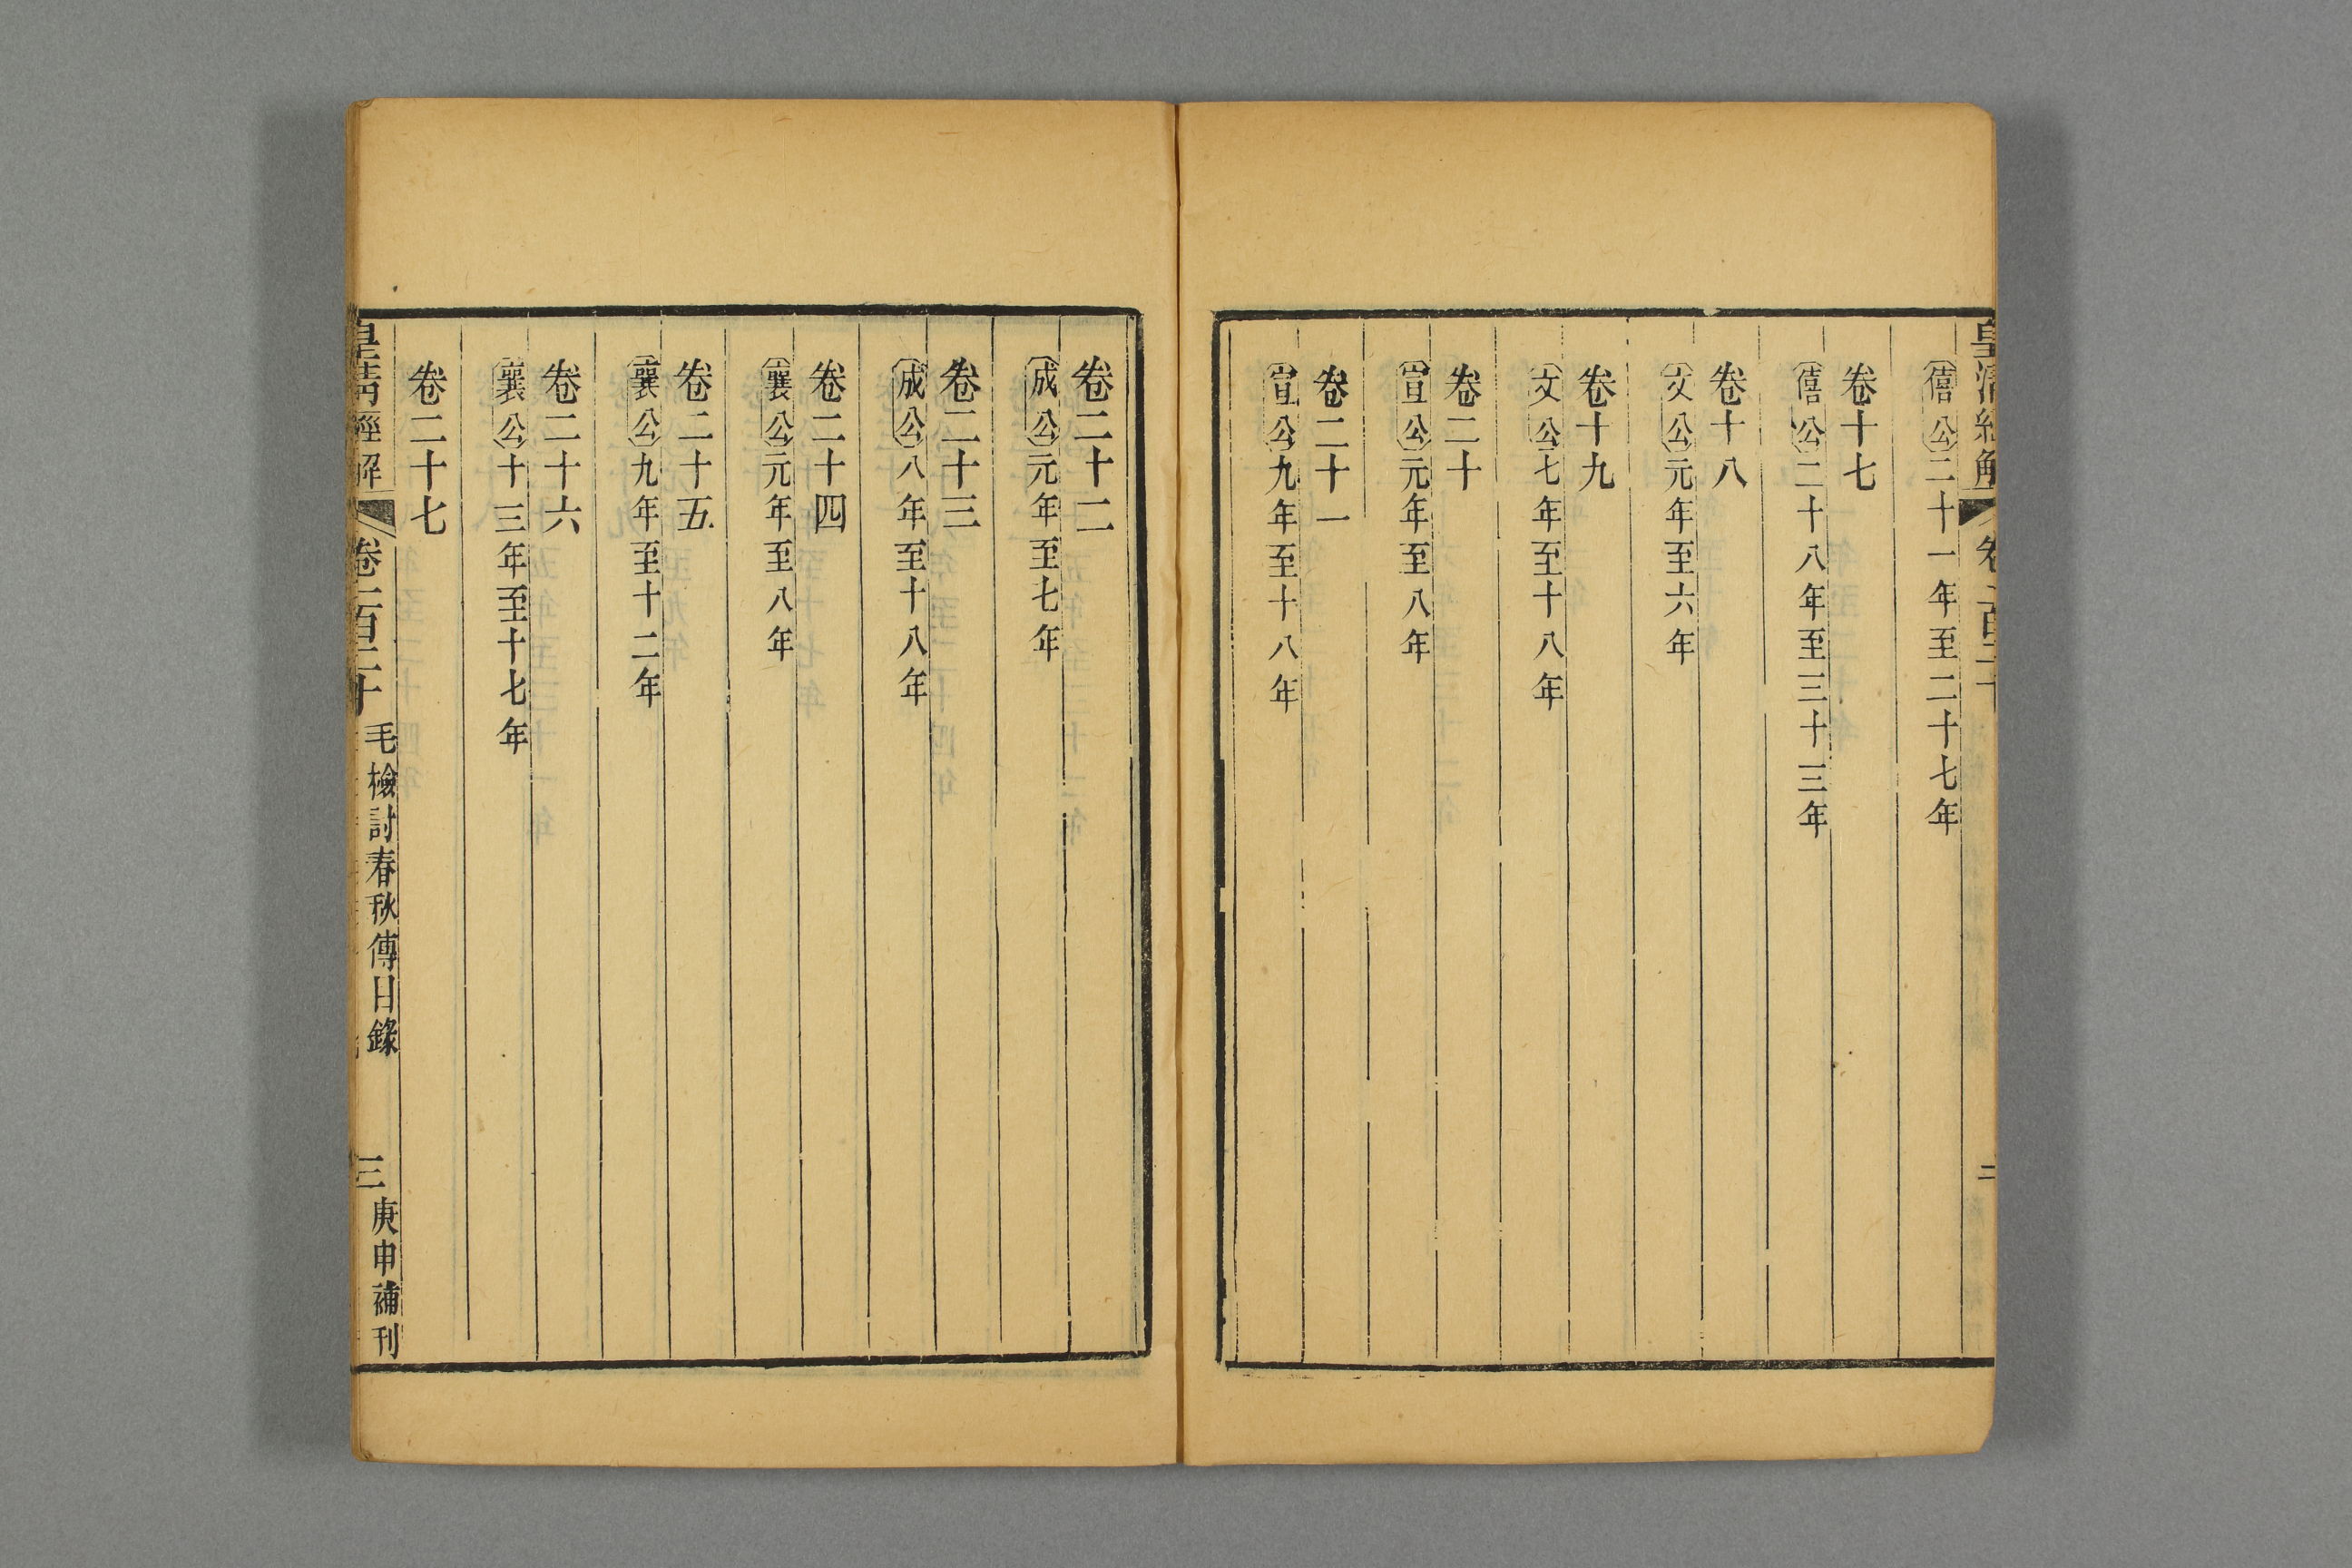 皇清經解 卷一百二十 二
僖公二十一年至二十七年
卷十七
僖公二十八年至三十三年
卷十八
文公元年至六年
卷十九
文公七年至十八年
卷二十
宣公元年至八年
卷二十一
宣公九年至十八年
卷二十二
成公元年至七年
卷二十三
成公八年至十八年
卷二十四
襄公元年至八年
卷二十五
襄公九年至十二年
卷二十六
襄公十三年至十七年
卷二十七
皇清經解 卷一百二十 毛檢討春秋傳目錄 三 庚申補刊